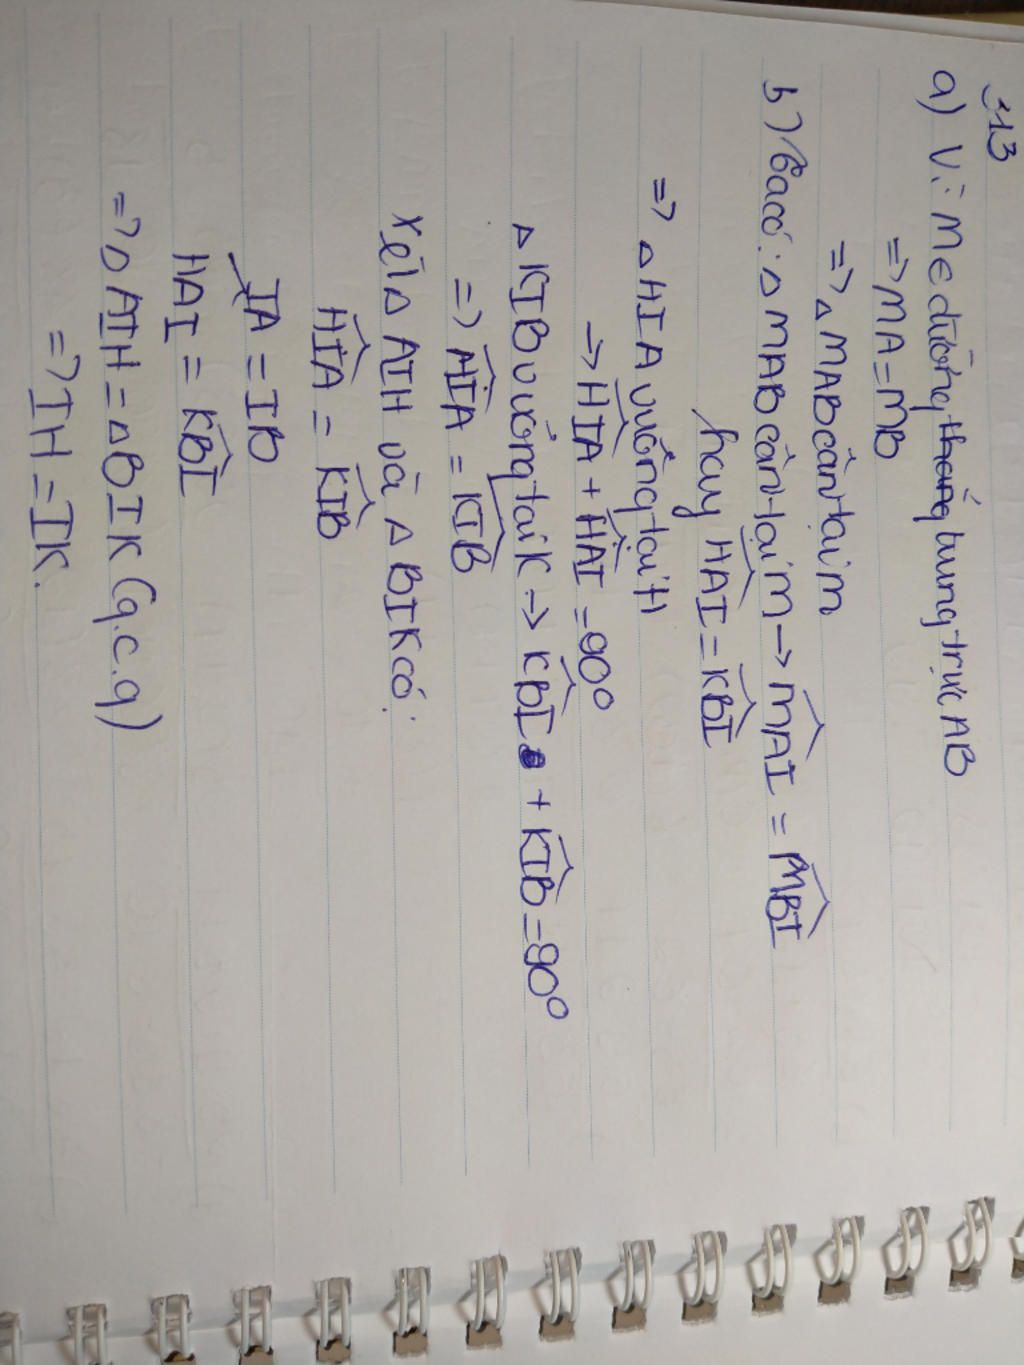 313
a) Vì M ∈ đường trung trực AB
=> MA = MB
=> △ MAB cân tại M
b) Ta có: △ MAB cân tại M → \widehat{MAI} = \widehat{MBI}
hay \widehat{HAI} = \widehat{KBI}
=> △ HIA vuông tại H
→ \widehat{HIA} + \widehat{HAI} = 90°
△ KIB vuông tại K → \widehat{KBI} + \widehat{KIB} = 90°
=> \widehat{HIA} = \widehat{KIB}
Xét △ AIH và △ BIK có:
\widehat{HIA} = \widehat{KIB}
IA = IB
\widehat{HAI} = \widehat{KBI}
=> △ AIH = △ BIK (g.c.g)
=> IH = IK.